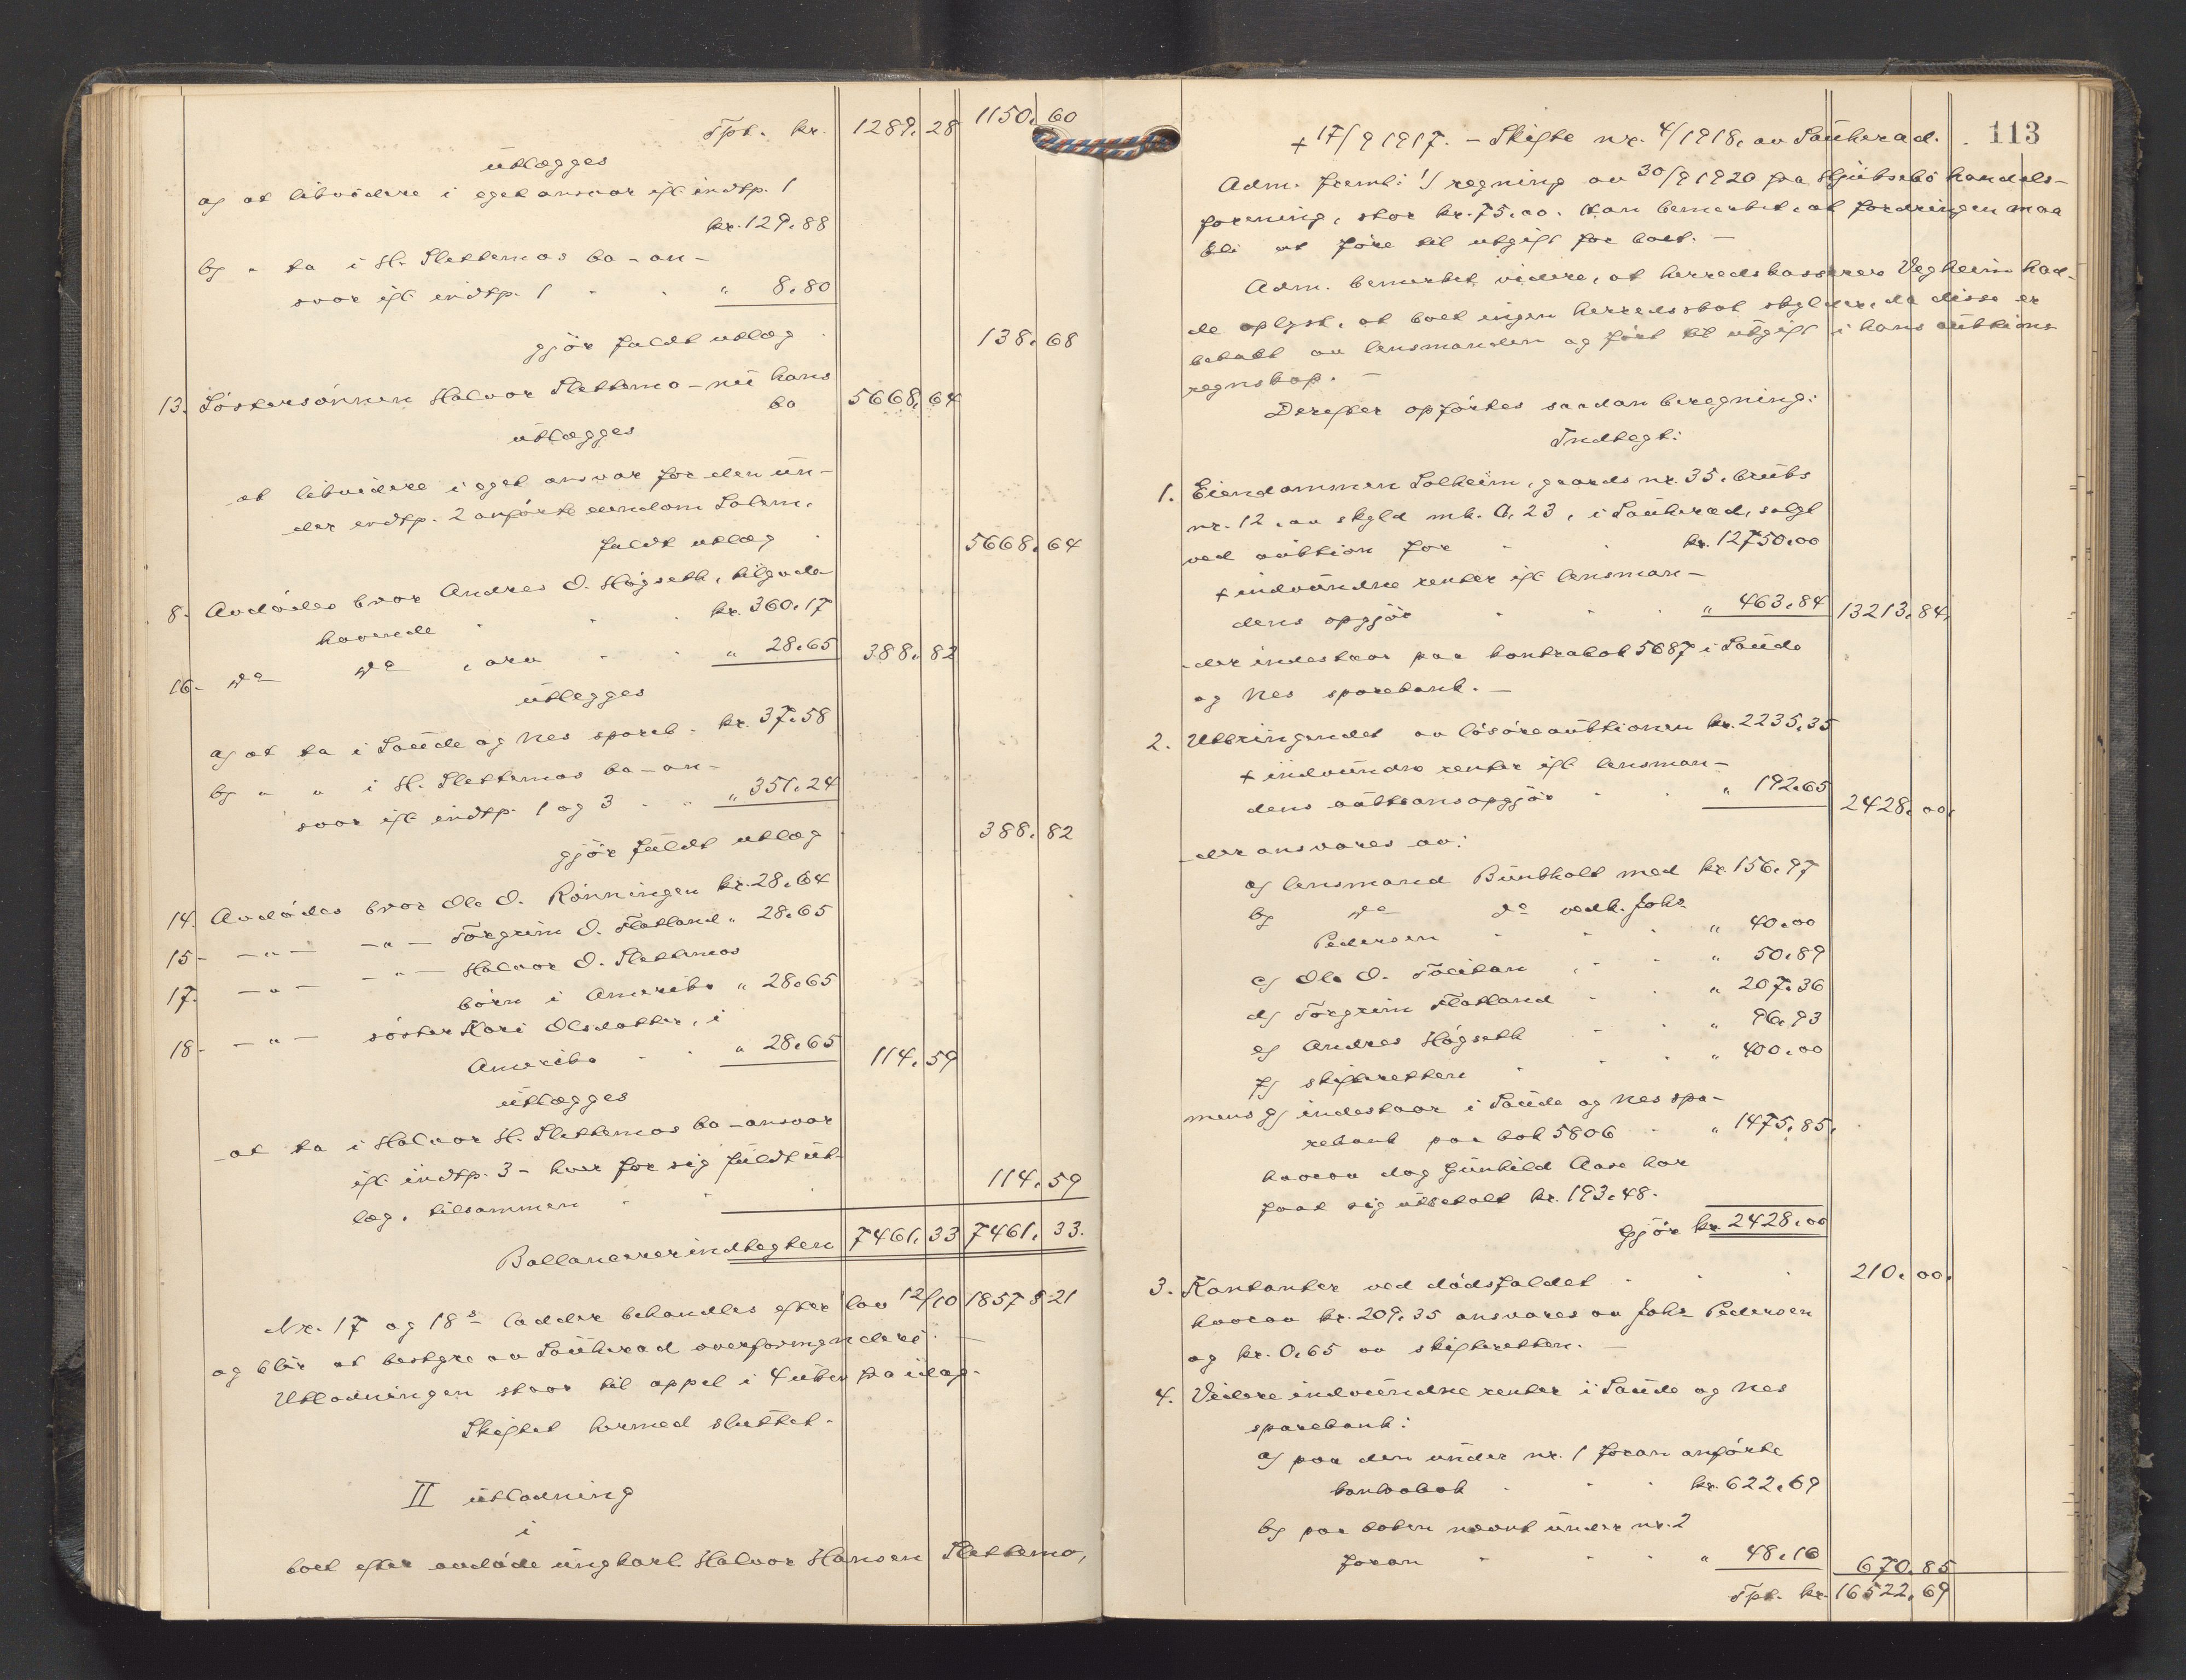 Tpt. kr. 1289.28 1150.60
utlægges
a) at likvidere i eget ansvar ifl. indtp. 1
kr. 129.88
b) " ta i H. Slettemos bo-an-
svar ifl. indtp. 1 " 8.80
gjör fuldt utlæg 138.68
13. Söstersönnen Halvor Slettemo - nu hans
bo 5668.64
utlægges
at likvidere i eget ansvar for den un-
der indtp. 2 anförte eiendom Solem.
fuldt utlæg 5668.64
8. Avdödes bror Andres O. Högseth, tilgode-
havende kr. 360.17
16. do do , arv " 28.65 388.82
utlegges
a) at ta i Saude og Nes spareb. kr. 37.58
b) " " i H. Slettemos bo-an-
svar ifl. indtp. 1 og 3 " 351.24
gjör fuldt utlæg 388.82
14. Avdödes bror Ole O. Rönningen kr. 28.64
15 - -"- -"- Torgrim O. Flatland " 28.65
17. -"- -"- Halvor O. Slettemos
börn i Amerika " 28.65
18 - -"- söster Kari Olsdatter, i
Amerika " 28.65 114.59
utlægges
at ta i Halvor H. Slettemos bo-ansvar
ifl. indtp. 3 - hver for sig fuldt ut-
læg, tilsammen 114.59
Ballancerer indtegten 7461.33 7461.33.
Nr. 17 og 18s lodder behandles efter lov 12/10 1857 § 21
og blir at bestyre av Sauherad overformynderi. -
Utlodningen staar til appel i 4 uker fra idag.
Skiftet hermed sluttet.
II utlodning
i
boet efter avdöde ungkarl Halvor Hansen Slettemo,
113
+ 17/9 1917. - Skifte nr. 4/1918, av Sauherad.
Adm. freml: 1) regning av 30/9 1920 fra Hjuksebö handels-
forening, stor kr. 75.00. Han bemerket, at fordringen maa
bli at före til utgift for boet. -
Adm. bemerket videre, at herredskasserer Vegheim had-
de oplyst, at boet ingen herredsskat skylder, da disse er
betalt av lensmanden og fört til utgift i hans auktions
regnskap. -
Derefter opförtes saadan beregning:
Indtegt:
1. Eiendommen Solheim, gaards nr. 35, bruks
nr. 12, av skyld mk. 0,23, i Sauherad, solgt
ved auktion for kr. 12750.00
+ indvundne renter ifl. lensman-
dens opgjör " 463.84 13213.84.
der indestaar paa kontrabok 5687 i Saude
og Nes sparebank. -
2. Utbringendet av lösöreauktionen kr. 2235.35
+ indvundne renter ifl. lensman-
dens auktionsopgjör " 192.65 2428.00.
der ansvares av:
a) lensmand Bunkholt med kr. 156.97
b) do do vedk. Johs.
Pedersen " 40.00
c) Ole O. " 50.89
d) Torgrim Flatland " 207.36
e) Andres Högseth " 96.93
f) skifteretten " 400.00
mens g) indestaar i Saude og Nes spa-
rebank paa bok 5806 " 1475.85.
hvorav dog Gunhild Aase har
faat sig utbetalt kr. 193.48.
gjör kr. 2428.00
3. Kontanter ved dödsfaldet 210.00.
hvorav kr. 209.35 ansvares av Johs. Pedersen
og kr. 0.65 av skifteretten. -
4. Videre indvundne renter i Saude og Nes
sparebank:
a) paa den under nr. 1 foran anförte
kontrabok kr. 622.69
b) paa boken nævnt under nr. 2
foran " 48.16 670.85
Tpt. kr. 16522.69